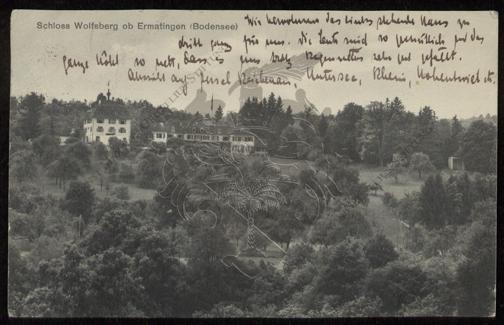 Schloss Wolfsberg ob Ermatingen (Bodensee)
Wir bewohnen das links stehende Haus zu
dritt ganz für uns. Die Leute sind so gemütlich und das
ganze Hôtel so nett, dass es uns trotz Regenwetter sehr gut gefällt.
Aussicht auf Insel Reichenau, Untersee, Rhein, Hohentwiel etc.